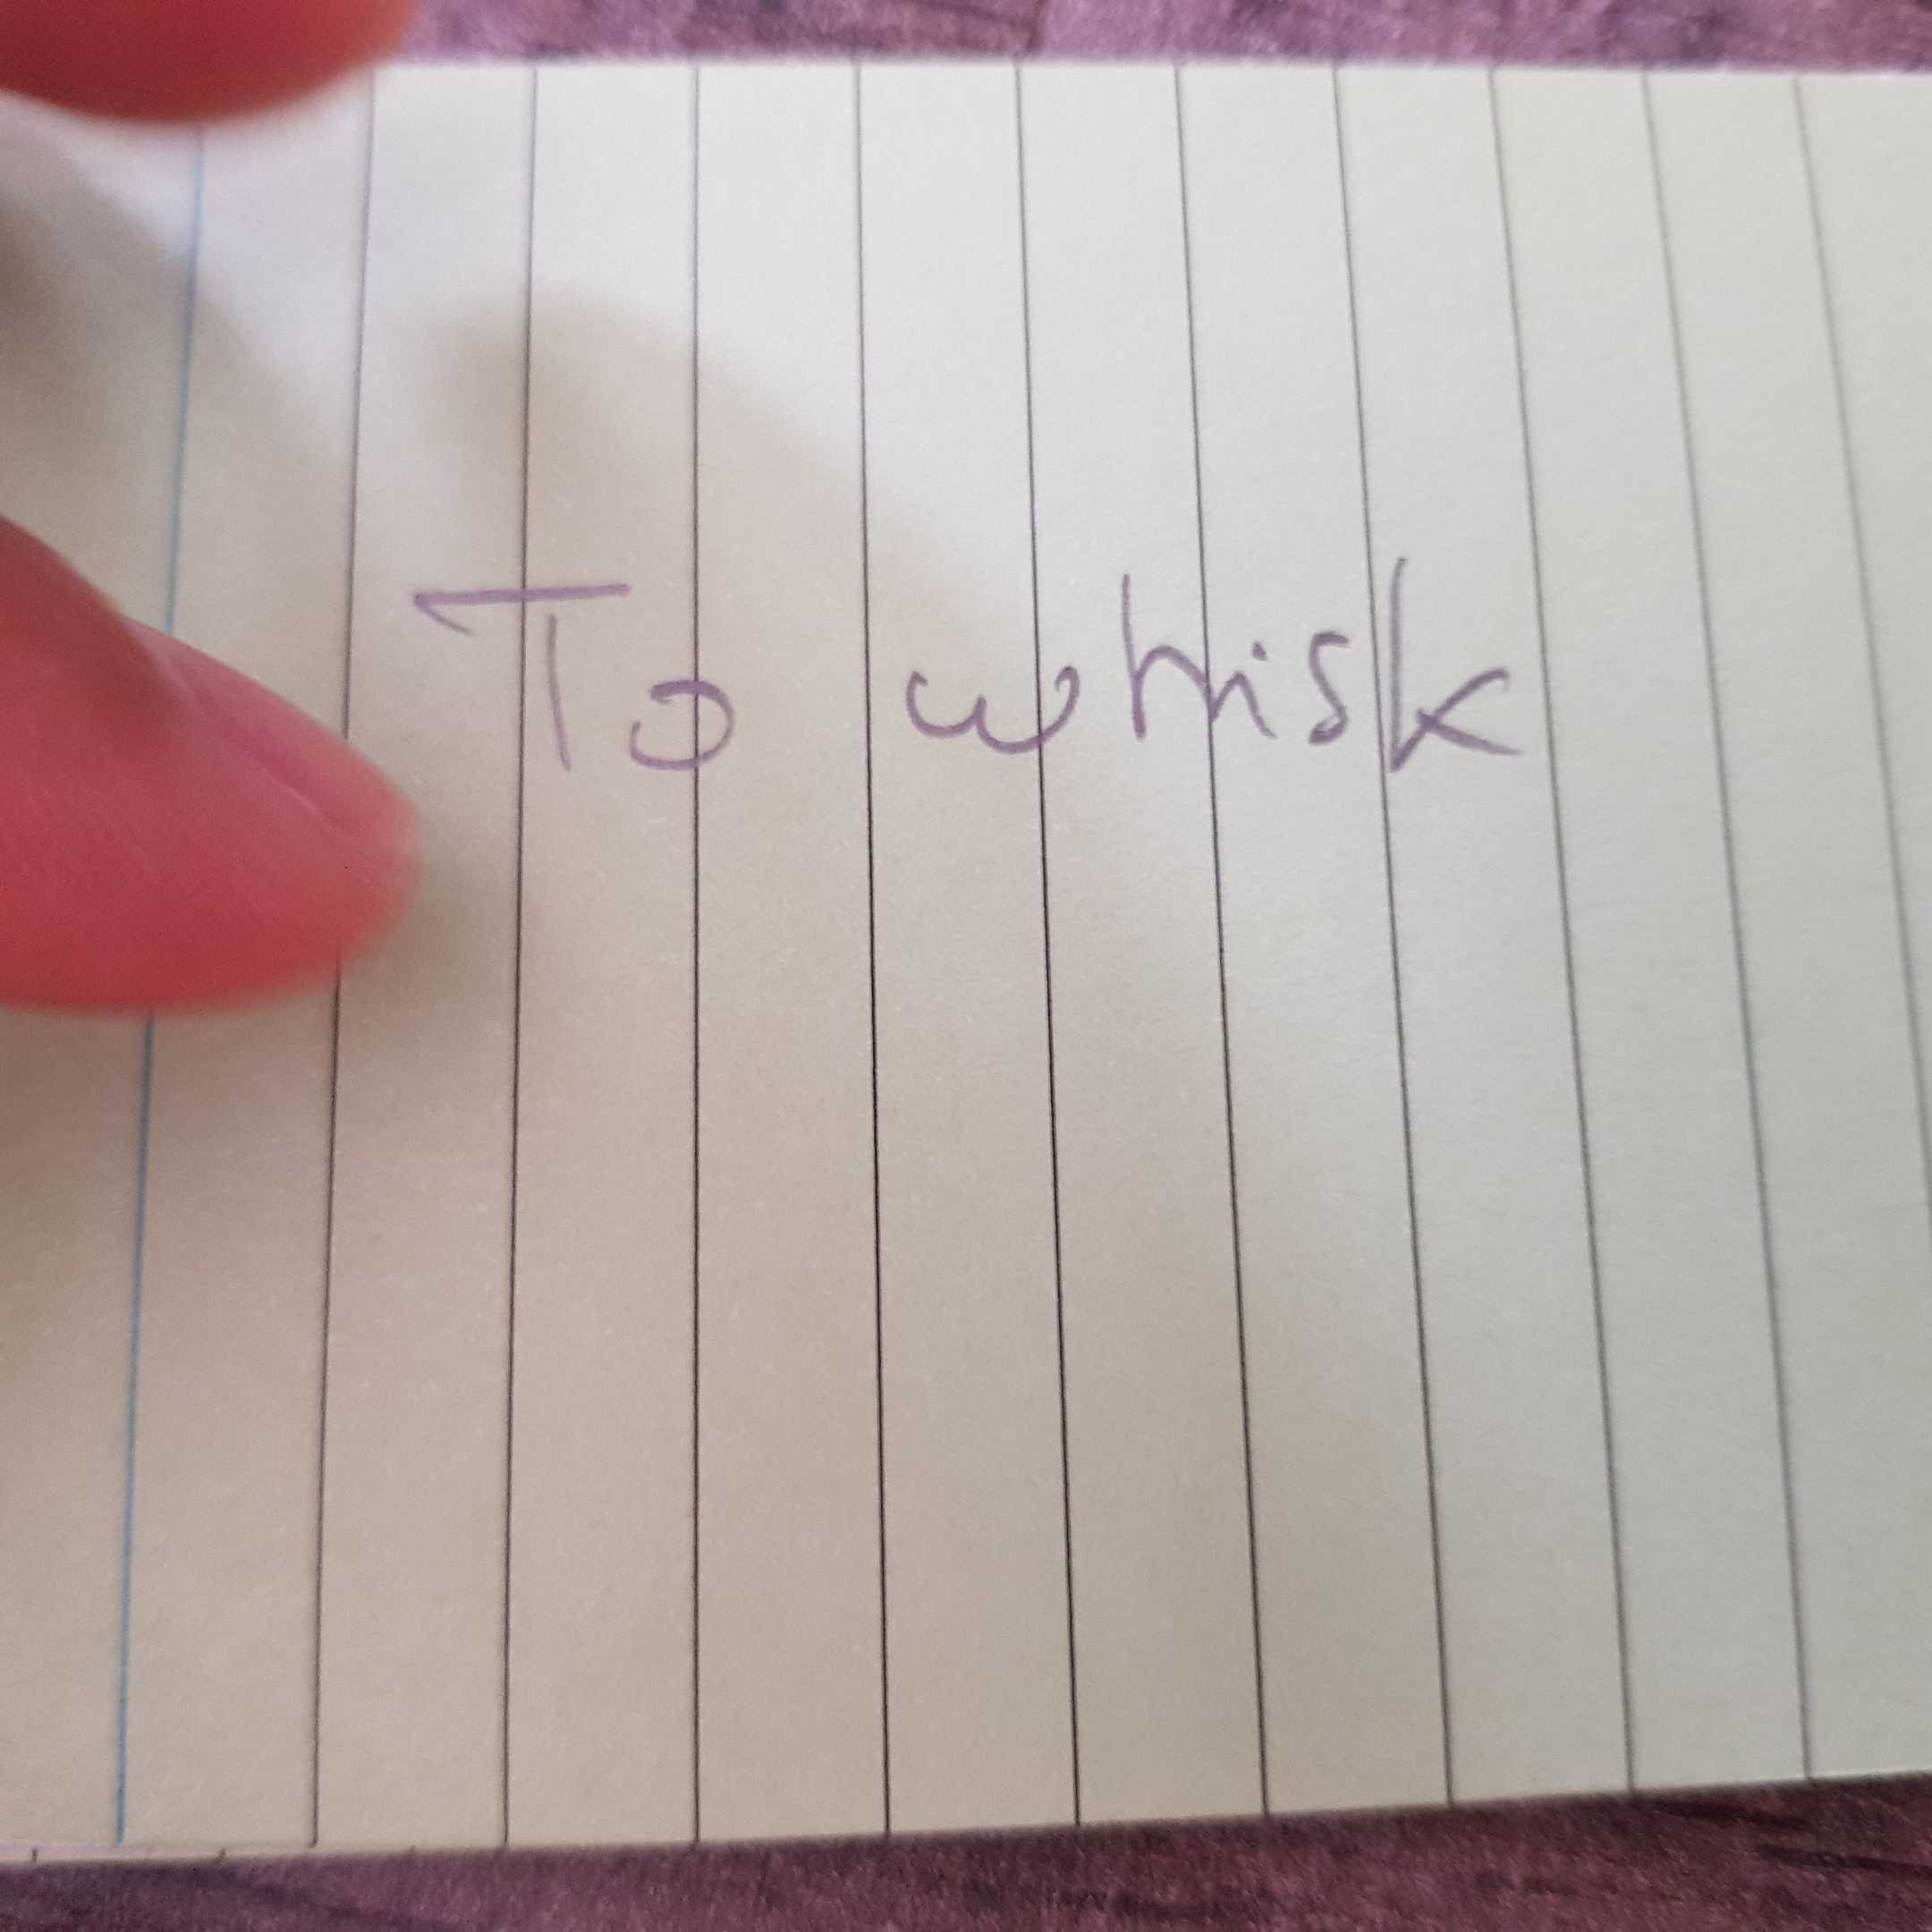 To whisk